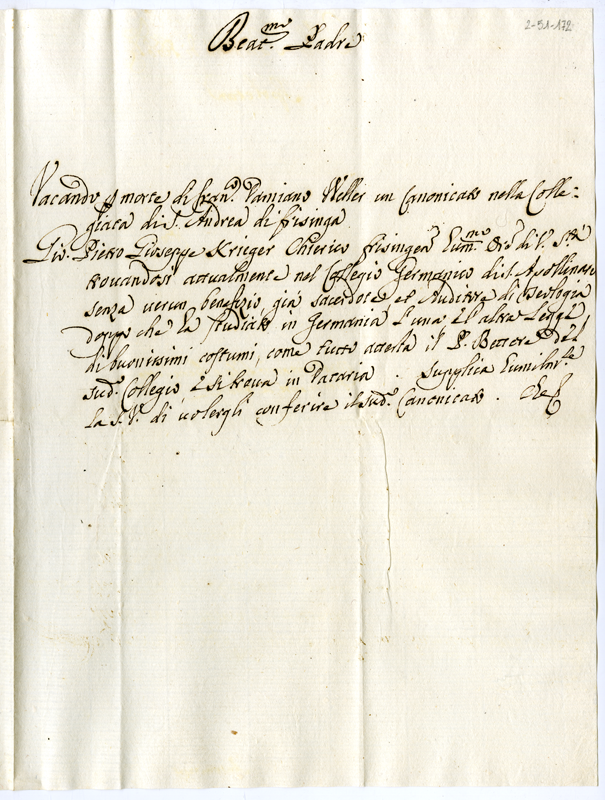 2-51-172
Beat.mo Padre
Vacando p morte di Fran.o Damiano Weller un Canonicato nella Colle=
giata di S. Andrea di Frisinga
Gio: Pietro Giuseppe Krieger Chierico Frisingen Eum.mo Ore di V. S.tà
trovandosi attualmente nel Collegio Germanico di S. Apollinare
senza verun benefizio già sacerdote et Auditore di Teologia
doppo che ha studiato in Germania l'una e l'altra Legge
di buonissimi costumi, come tutto attesta il P. Rettore del
sud.o Collegio e si trova in Dataria. supplica Eumilm.te
la S. V. di volergli conferire il sud.o Canonicato. Che